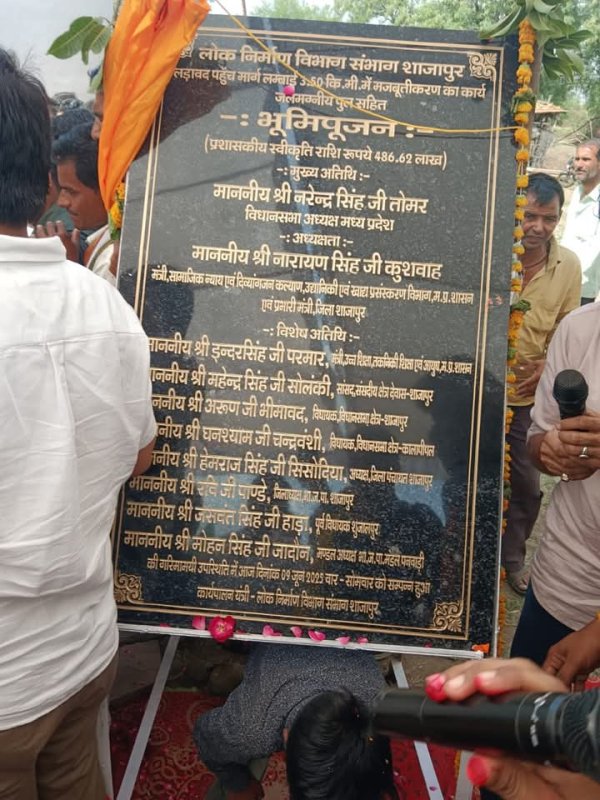 लोक निर्माण विभाग संभाग शाजापुर
लड़ावद पहुँच मार्ग लम्बाई 3.50 कि.मी. में मजबूतीकरण का कार्य
जलमग्नीय पुल सहित
-: भूमिपूजन :-
(प्रशासकीय स्वीकृति राशि रूपये 486.62 लाख)
-: मुख्य अतिथि :-
माननीय श्री नरेन्द्र सिंह जी तोमर
विधानसभा अध्यक्ष मध्य प्रदेश
-: अध्यक्षता :-
माननीय श्री नारायण सिंह जी कुशवाह
मंत्री, सामाजिक न्याय एवं दिव्यांगजन कल्याण, उद्यानिकी एवं खाद्य प्रसंस्करण विभाग, म.प्र. शासन
एवं प्रभारी मंत्री, जिला शाजापुर
-: विशेष अतिथि :-
माननीय श्री इन्दरसिंह जी परमार, मंत्री, उच्च शिक्षा, तकनिकी शिक्षा एवं आयुष, म.प्र. शासन
माननीय श्री महेन्द्र सिंह जी सोलंकी, सांसद, संसदीय क्षेत्र देवास-शाजापुर
माननीय श्री अरूण जी भीमावद, विधायक, विधानसभा क्षेत्र-शाजापुर
माननीय श्री घनश्याम जी चन्द्रवंशी, विधायक, विधानसभा क्षेत्र-कालापीपल
माननीय श्री हेमराज सिंह जी सिसोदिया, अध्यक्ष, जिला पंचायत शाजापुर
माननीय श्री रवि जी पाण्डे, जिलाध्यक्ष, भा.ज.पा. शाजापुर
माननीय श्री जसवंत सिंह जी हाड़ा, पूर्व विधायक शुजालपुर
माननीय श्री मोहन सिंह जी जादोन, मण्डल अध्यक्ष भा.ज.पा. मंडल पनवाड़ी
की गरिमामयी उपस्थिति में आज दिनांक 09 जून 2025 वार - सोमवार को सम्पन्न हुआ
कार्यपालन यंत्री - लोक निर्माण विभाग संभाग शाजापुर